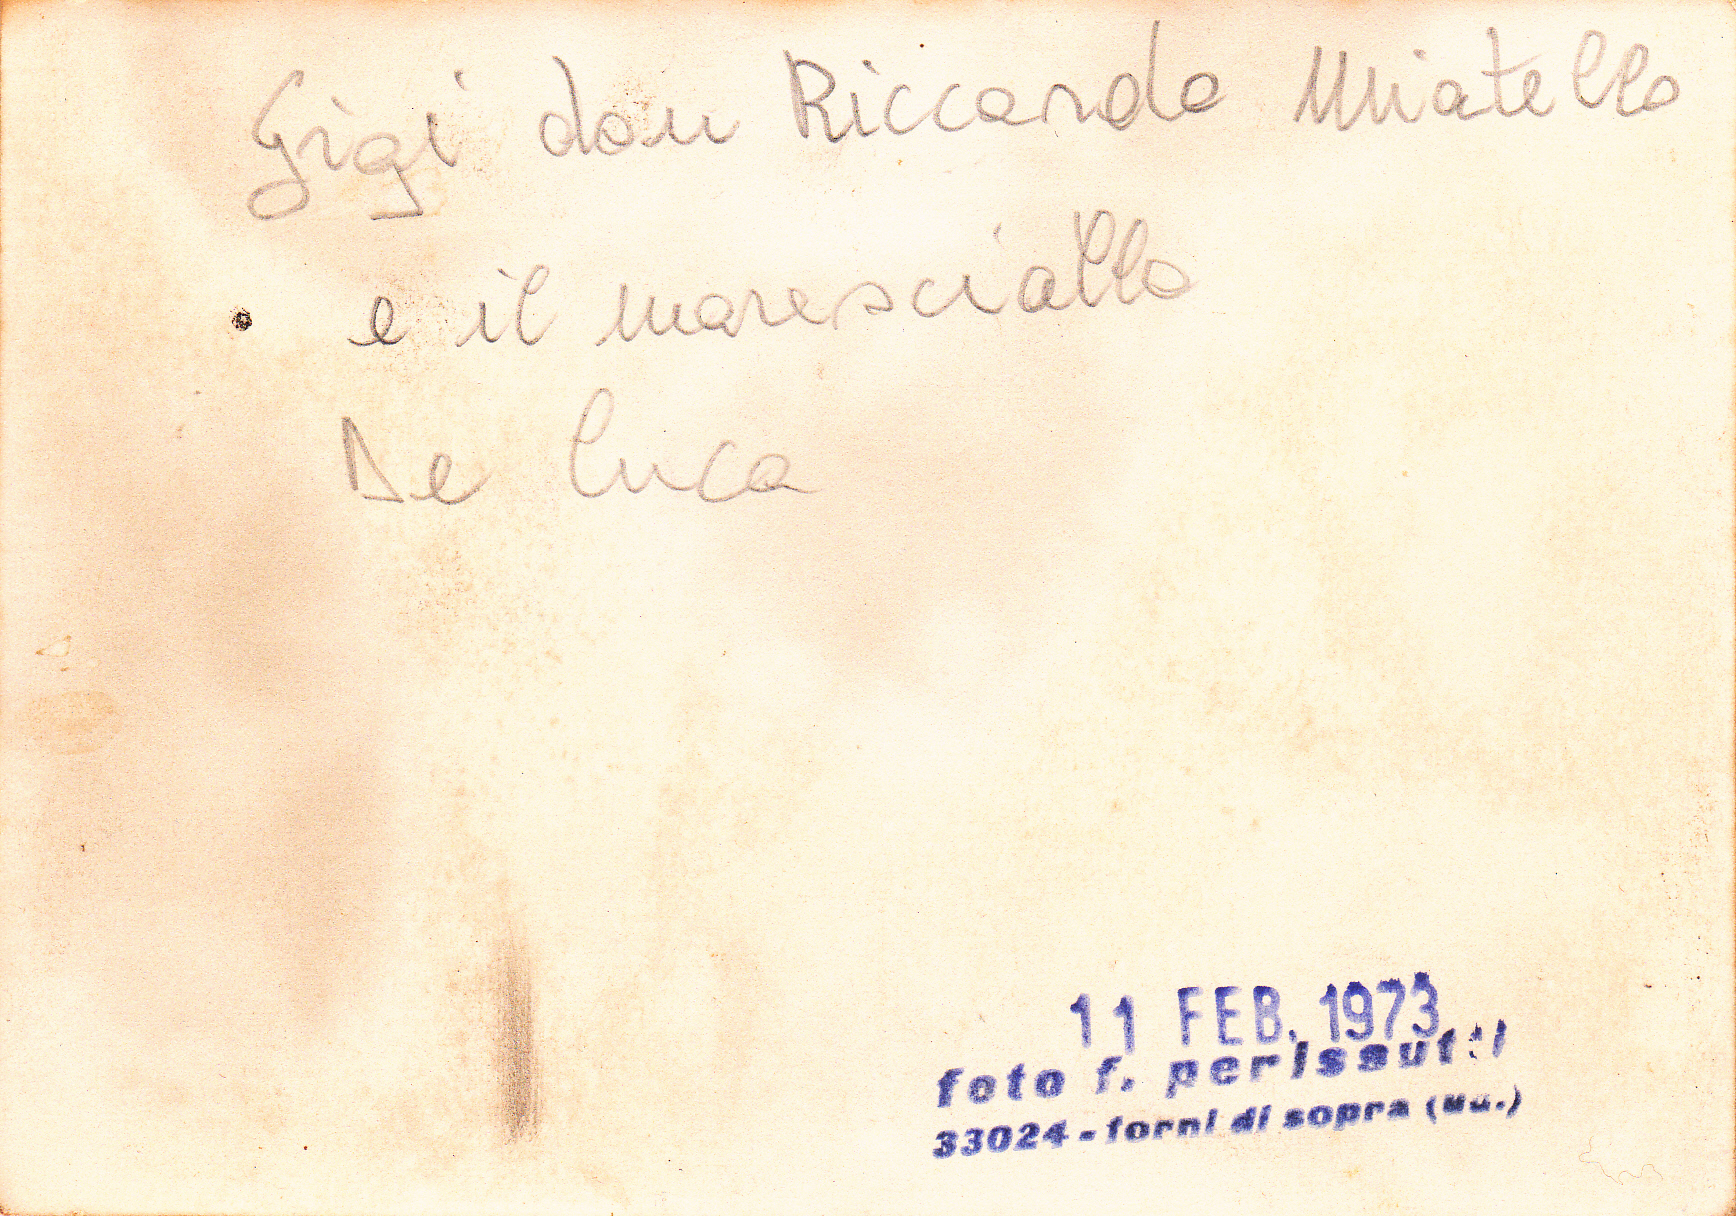 Gigi don Riccardo Miatello
e il maresciallo
De Luca
11 FEB. 1973
foto f. perissutti
33024 - forni di sopra (ud.)